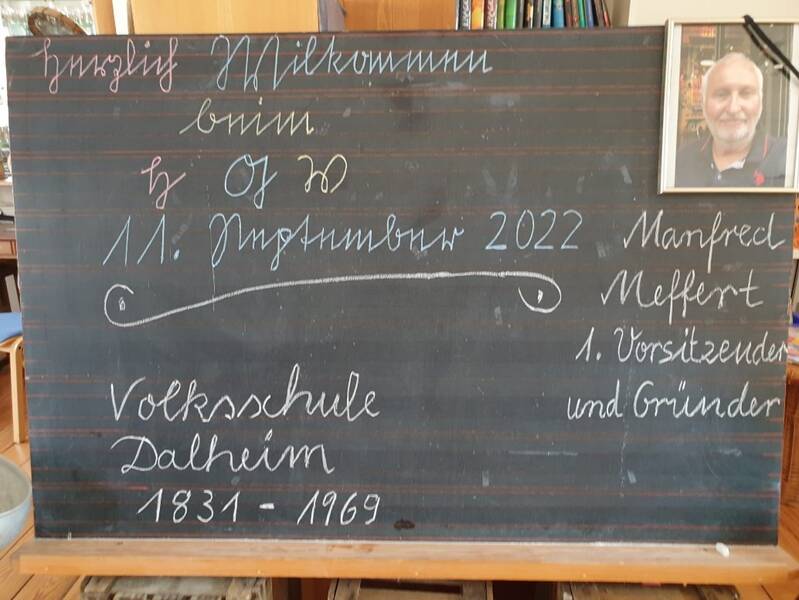 Herzlich Wilkommen
beim
H G V
11. September 2022
Manfred
Meffert
1. Vorsitzender
und Gründer
Volksschule
Dalheim
1831 - 1969